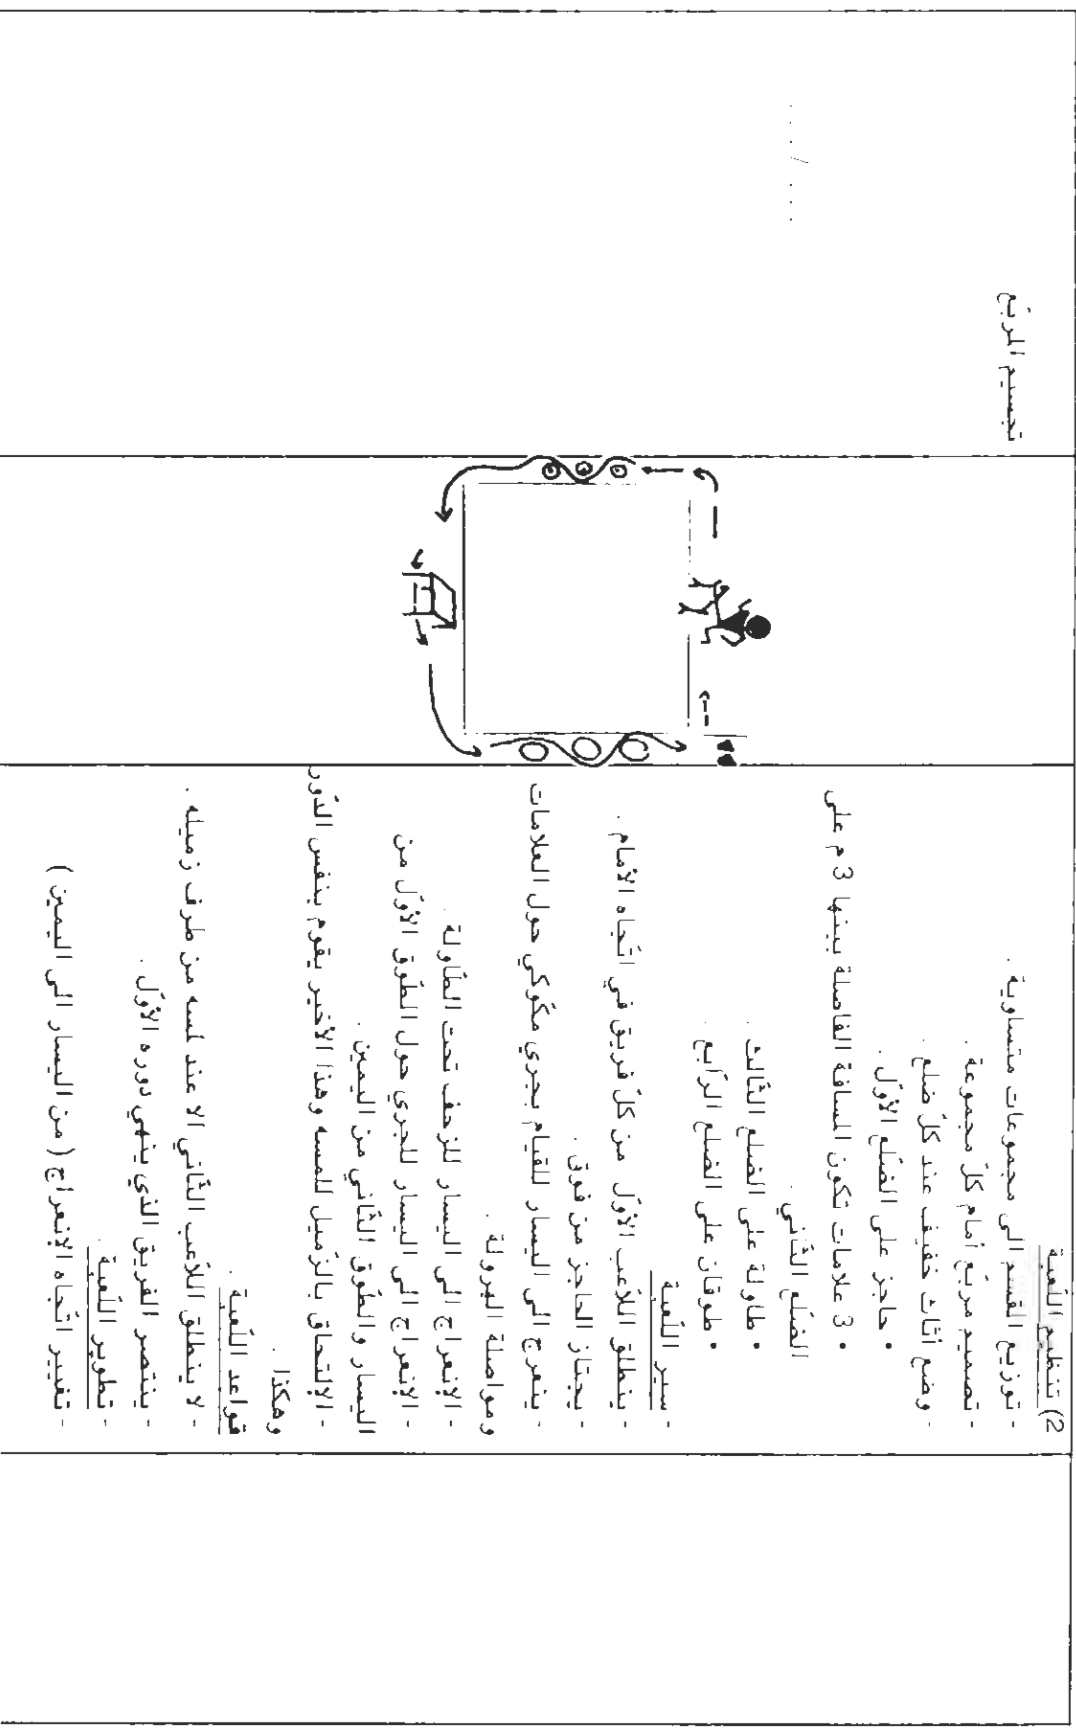 2) تنظيم اللّعبة
- توزيع القسم الى مجموعات متساوية .
- تصميم مربّع أمام كلّ مجموعة .
- وضع أثاث خفيف عند كلّ ضلع .
• حاجز على الضّلع الأوّل .
• 3 علامات تكون المسافة الفاصلة بينها 3 م على
الضّلع الثّاني .
• طاولة على الضلع الثّالث .
• طوقان على الضلع الرّابع .
- سير اللّعبة
- ينطلق اللاّعب الأوّل من كلّ فريق في اتّجاه الأمام .
- يجتاز الحاجز من فوق .
- ينعرج الى اليسار للقيام بجري مكّوكي حول العلامات
ومواصلة الهرولة .
- الإنعراج الى اليسار للزحف تحت الطّاولة .
- الإنعراج الى اليسار للجري حول الطّوق الأوّل من
اليسار والطّوق الثّاني من اليمين .
- الإلتحاق بالزّميل للمسه وهذا الأخير يقوم بنفس الدّور
وهكذا .
قواعد اللّعبة .
- لا ينطلق اللاّعب الثّاني الا عند لمسه من طرف زميله .
- ينتصر الفريق الذي ينهي دوره الأوّل .
- تطوير اللّعبة .
- تغيير اتّجاه الإنعراج ( من اليسار الى اليمين )
تجسيم المربّع
..../....